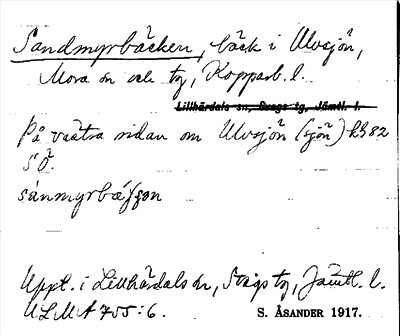 Sandmyrbäcken, bäck i Ulvsjön,
Mora sn och tg, Kopparb. l.
Lillhärdals sn, Svegs tg, Jämtl. l.
På västra sidan om Ulvsjön (sjön) bl 82
SÖ.
Uppt. i Lillhärdals sn, Svegs tg, Jämtl. l.
ULMA 755:6.
S. ÅSANDER 1917.